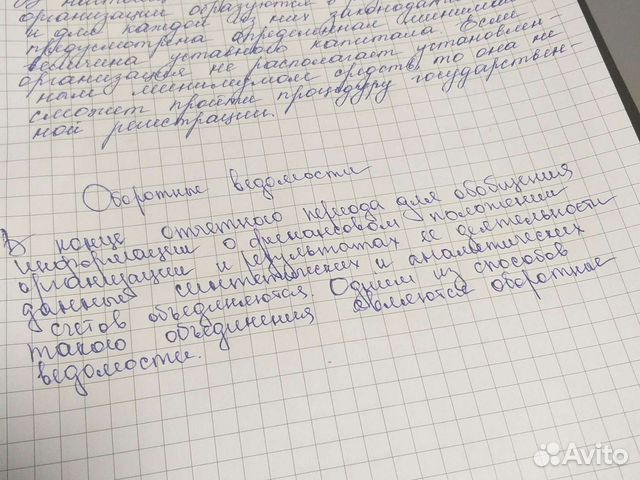 организации образуются
и для каждой из них законодат
предусмотрена определенная минималь
величина уставного капитала. Если
организация не располагает установлен-
ным минимумом средств, то она не
сможет пройти процедуру государствен-
ной регистрации.
Оборотные ведомости
В конце отчетного периода для обобщения
информации о финансовом положении
организации и результатах ее деятельности
данные синтетических и аналитических
счетов объединяются. Одним из способов
такого объединения являются оборотные
ведомости.
Avito